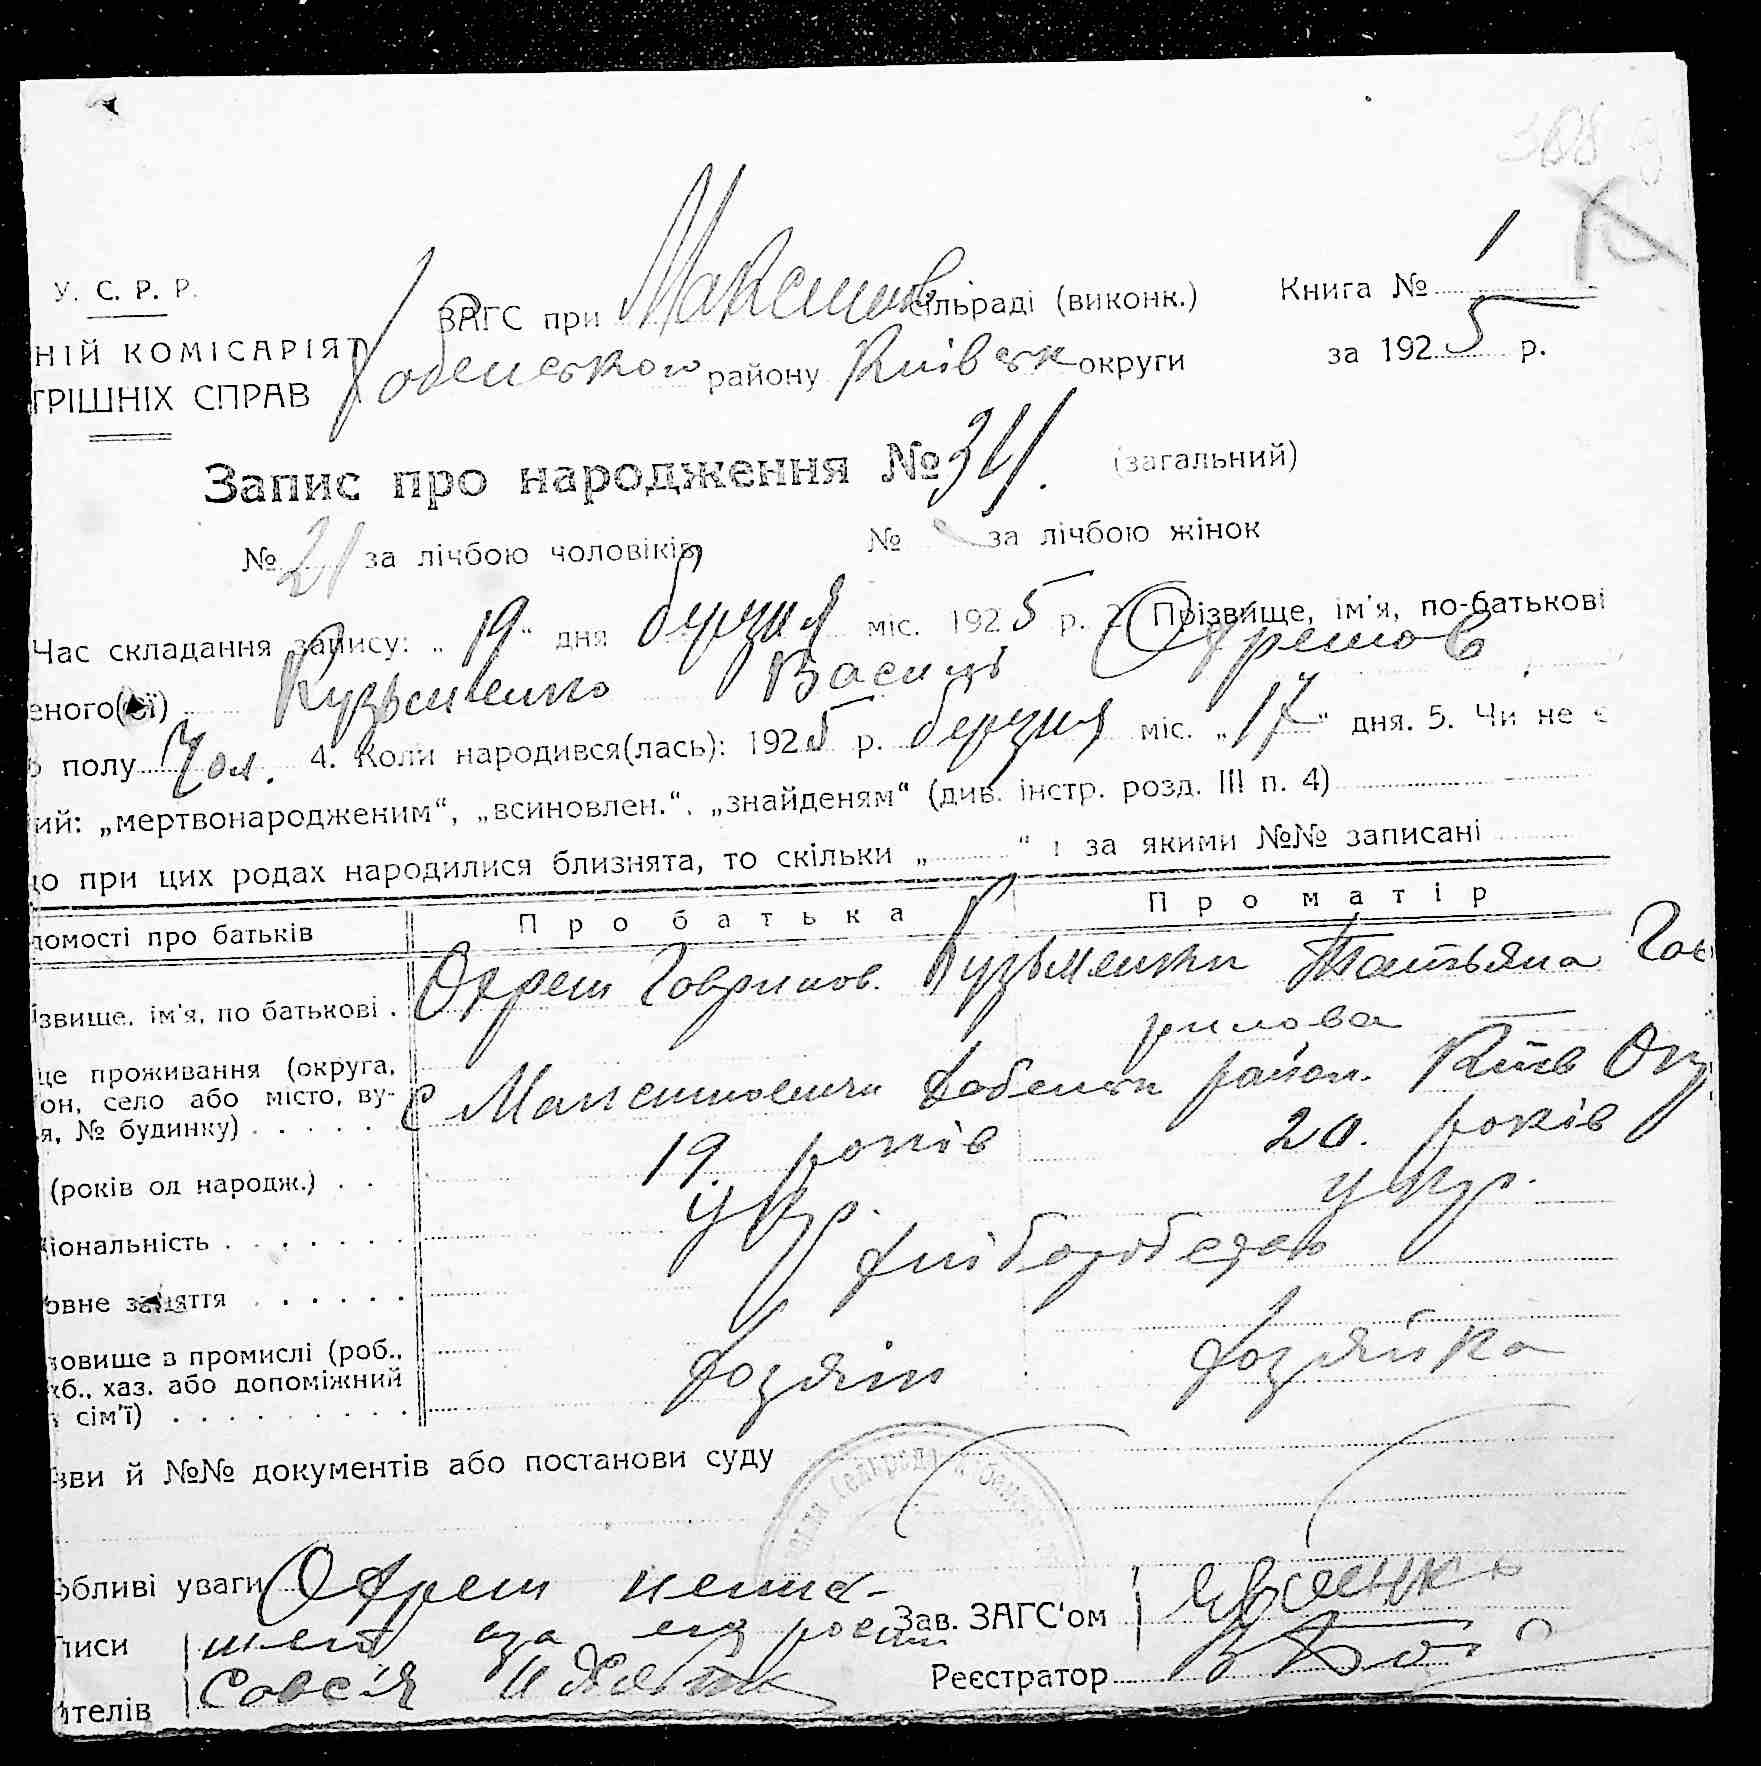 У. С. Р. Р.
ЗАГС при Максимов сільраді (виконк.) Книга № 1
НІЙ КОМІСАРІЯТ
ТРІШНІХ СПРАВ
району Київськ округи за 1925 р.
Запис про народження № (загальний)
№ 21 за лічбою чоловіків № за лічбою жінок
Час складання запису: „19“ дня березня міс. 1925 р. 2. Прізвище, ім'я, по-батькові
еного(ої) Кузьменко Василь Охремов
полу Чол. 4. Коли народився(лась): 1925 р. березня міс. „17“ дня. 5. Чи не є
ий: „мертвонародженим“, „всиновлен.“, „знайденям“ (див. інстр. розд. III п. 4)
що при цих родах народилися близнята, то скільки „ “ і за якими №№ записані
домості про батьків Про батька Про матір
ізвище, ім'я, по батькові . Охрем Говрилов. Кузьменки Татьяна Гов
рилова
це проживання (округа,
он, село або місто, ву-
я, № будинку) с Максимовичи район. Київ Окр
(років од народж.) 19 років 20. років
ціональність укр. укр.
овне заняття хліборобства
новище в промислі (роб.,
жб., хаз. або допоміжний
сім'ї) хозяїн хозяйка
зви й №№ документів або постанови суду
обливі уваги Охрем
Зав. ЗАГС'ом
писи
Реєстратор
ятелів